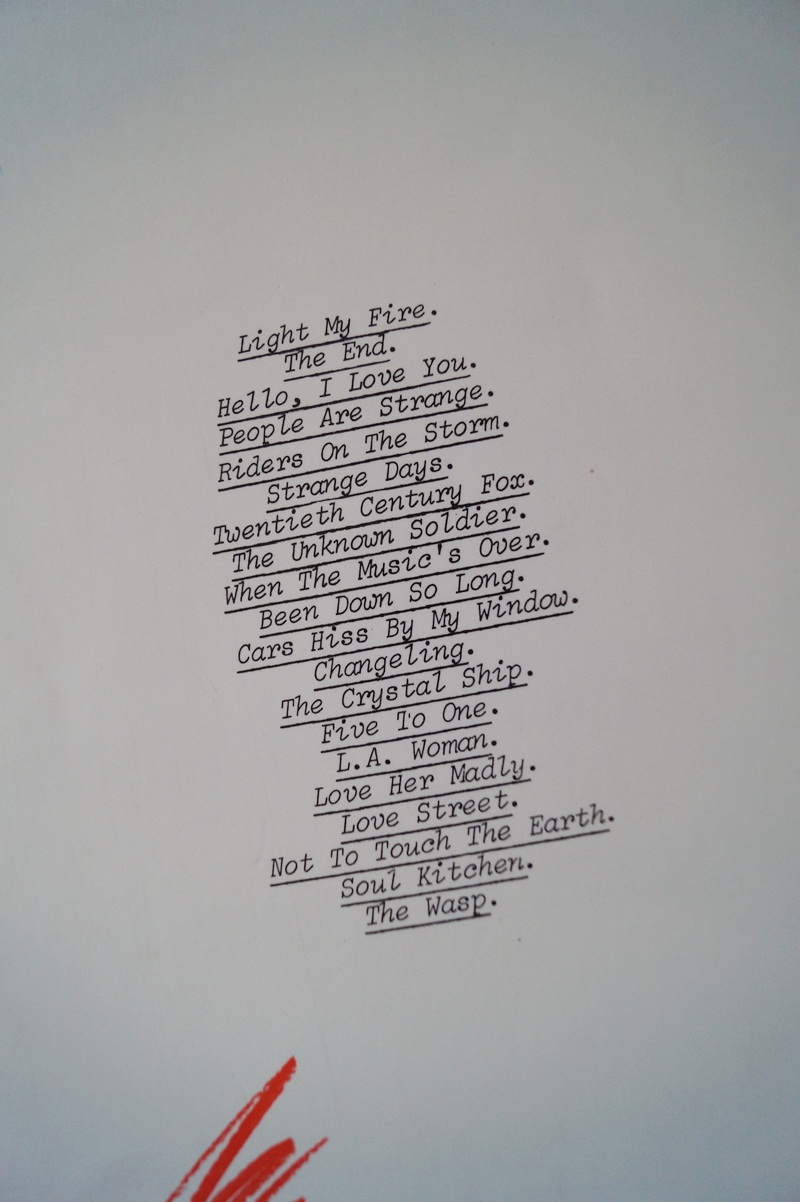 Light My Fire.
The End.
Hello, I Love You.
People Are Strange.
Riders On The Storm.
Strange Days.
Twentieth Century Fox.
The Unknown Soldier.
When The Music's Over.
Been Down So Long.
Cars Hiss By My Window.
Changeling.
The Crystal Ship.
Five To One.
L.A. Woman.
Love Her Madly.
Love Street.
Not To Touch The Earth.
Soul Kitchen.
The Wasp.